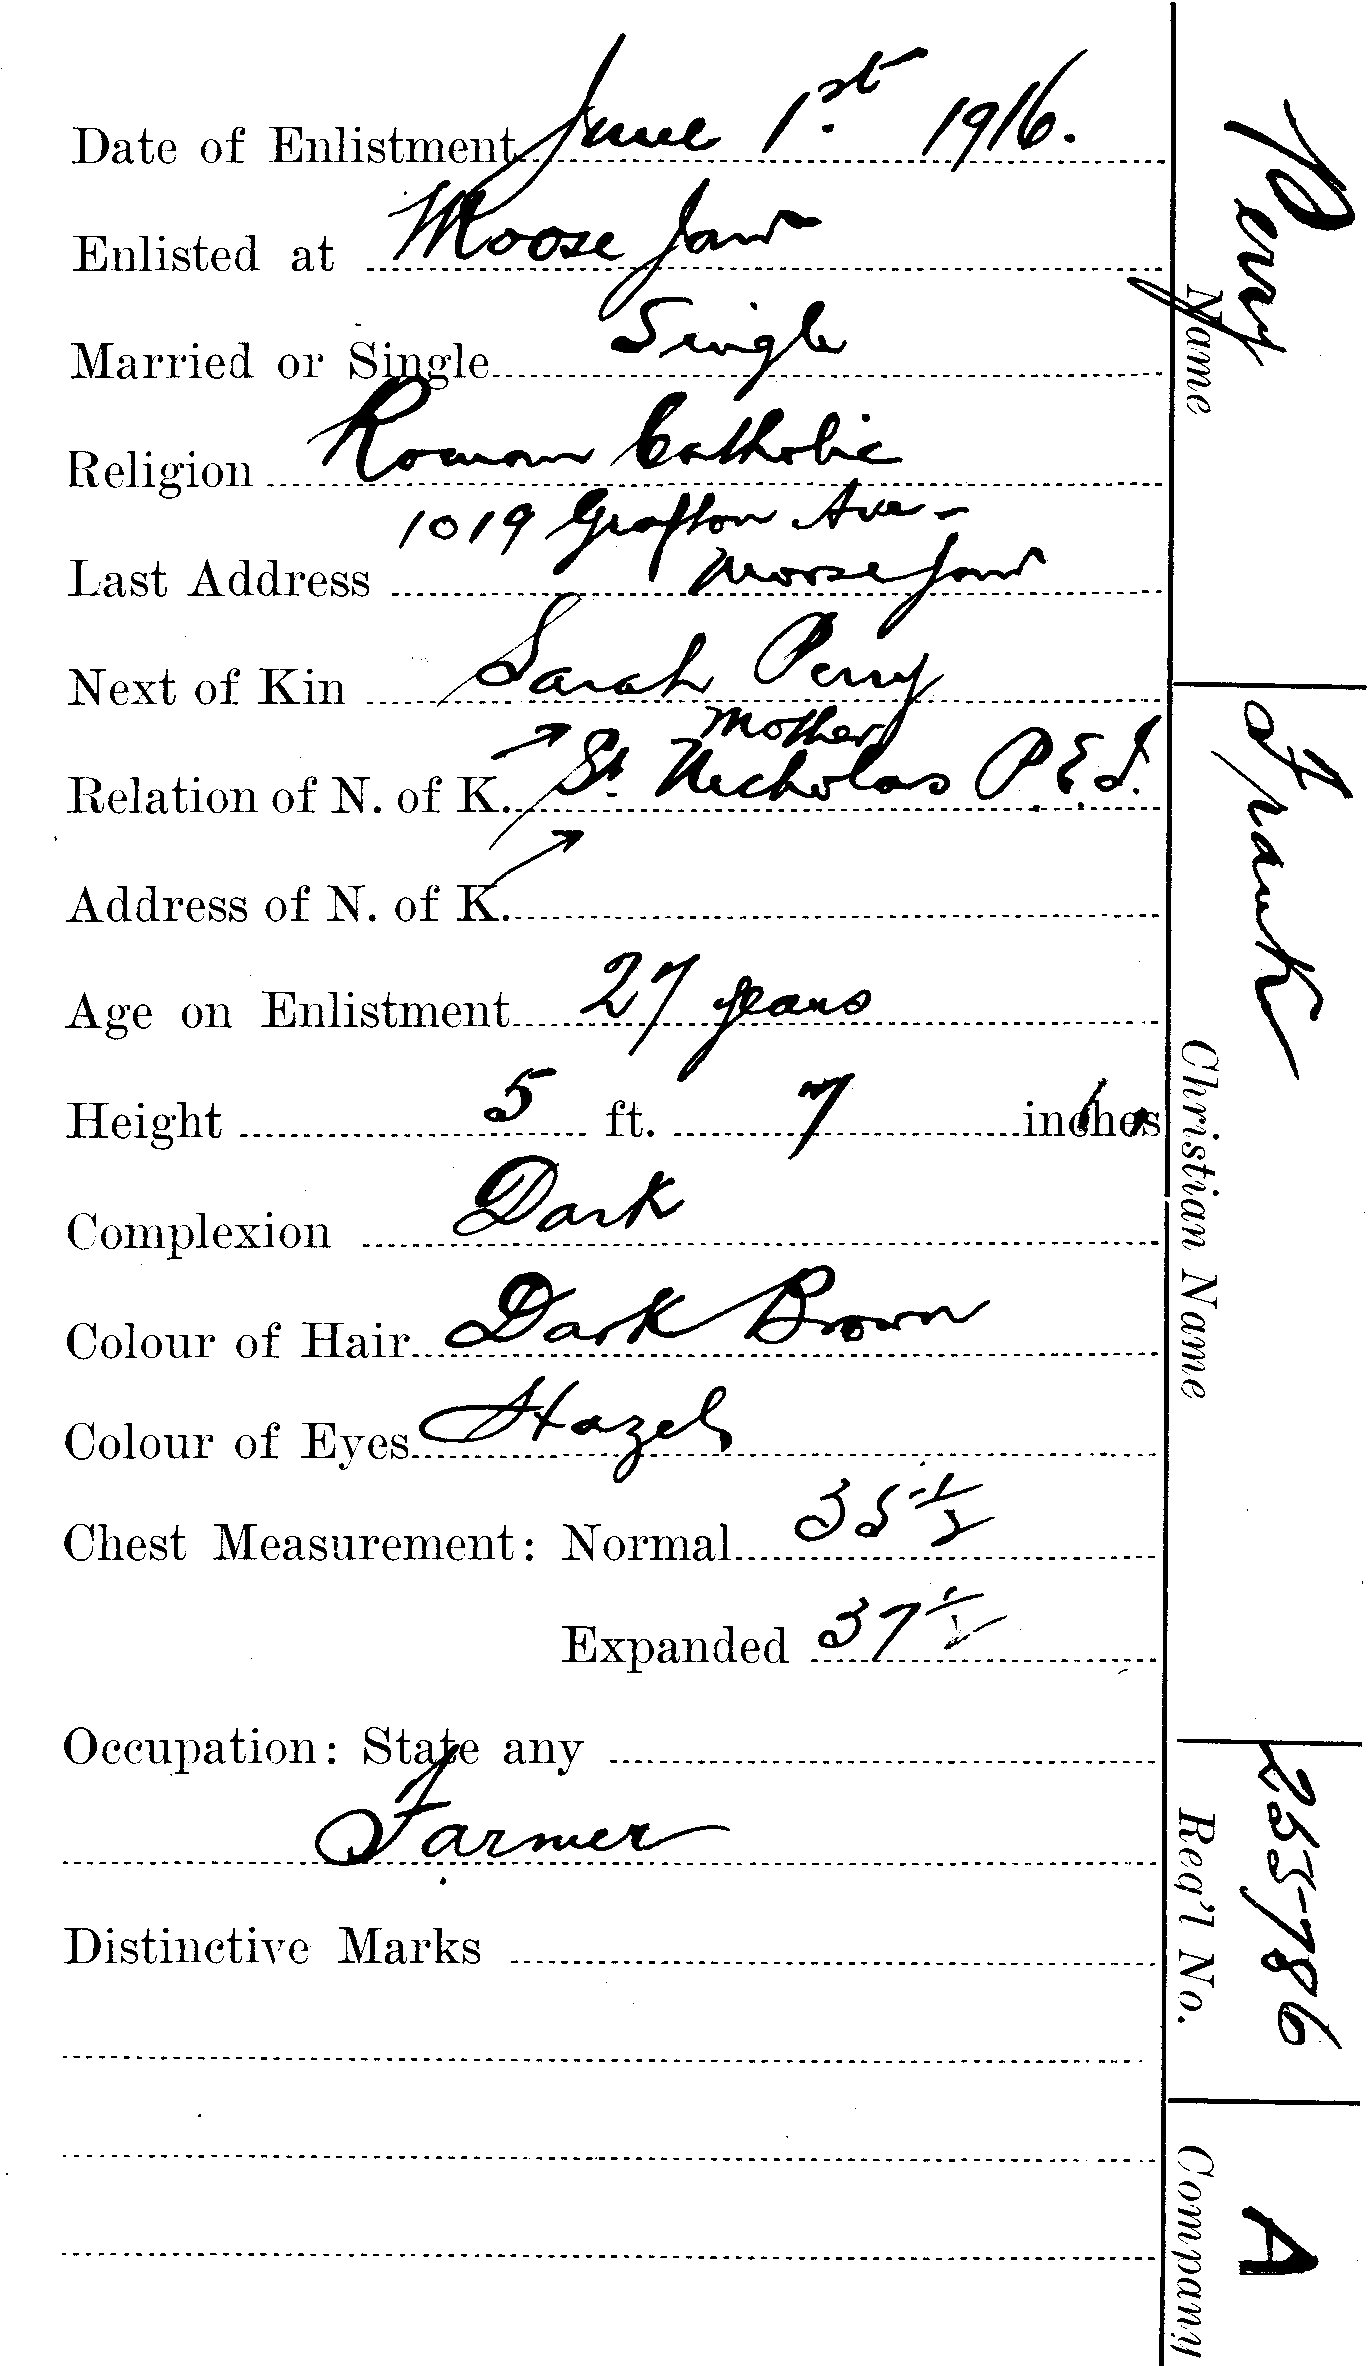 Date of Enlistment June 1st. 1916.
Enlisted at Moose Jaw
Married or Single Single
Religion Roman Catholic
1019 Grafton Ave -
Last Address Moose Jaw
Next of Kin Sarah Perry
Mother
Relation of N. of K. St. Nicholas P.E.I.
Address of N. of K.
Age on Enlistment 27 years
Height 5 ft. 7 inches
Complexion Dark
Colour of Hair Dark Brown
Colour of Eyes Hazel
Chest Measurement: Normal 35 1/2
Expanded 37 1/2
Occupation: State any
Farmer
Distinctive Marks
Perry
Name
Frank
Christian Name
255786
Reg'l No.
A
Company